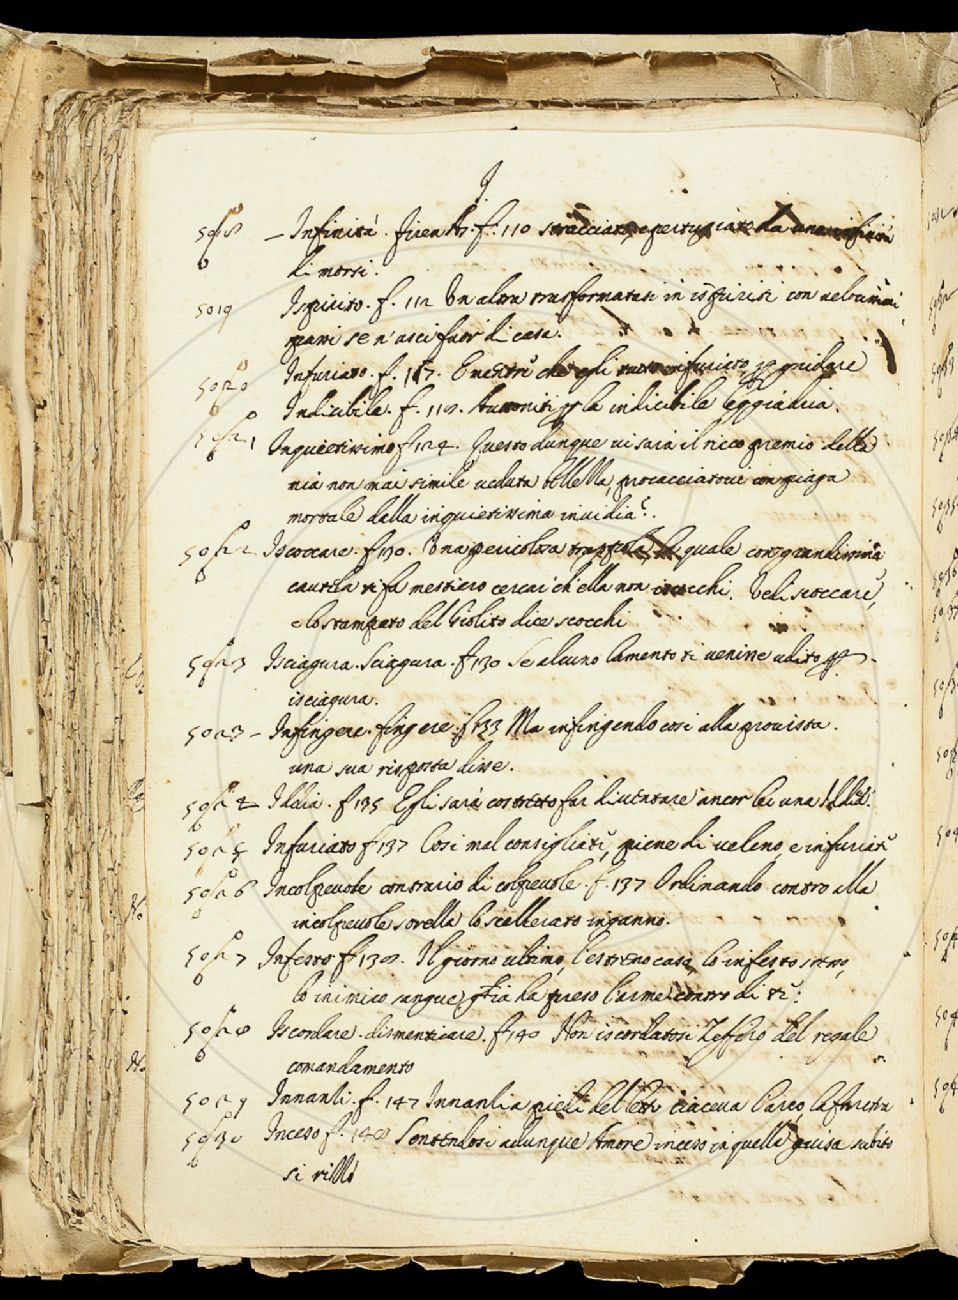 I
5018 – Infinità. f. 110 stracciato e pertugiato da una infinità
di morsi.
5019 f. 112 Un altra trasformatasi in con
se n'uscì fuor di casa.
5020 Infuriato. f. 117. che egli tutto infuriato gridare
Indicibile. f. 118. Attoniti per la indicibile leggiadria.
5021 Inquietissimo f. 124. Questo dunque vi sarà il ricco premio della
mia non mai simile veduta bellezza, procacciatove con piaga
mortale dalla inquietissima invidia.
5022 Iscoccare. f. 130. Una pericolosa trappola la quale con grandissima
cautela ti fa mestiero cercar ch'ella non iscocchi. Vedi scoccare,
e lo stampato del Giolito dice scocchi
5023 Isciagura. Sciagura. f. 130 Se alcuno lamento ti venisse udito
isciagura.
5023 – Infingere. fingere. f. 133 Ma infingendo così alla provista.
una sua risposta disse.
5024 Iddia. f. 135 Egli sarà costretto far diventare ancor lei una Iddia.
5025 Infuriato f. 137 Così mal consigliati, piene di veleno, e infuriate
5026 Incolpevole contrario di colpevole. f. 137 Ordinando contro alla
incolpevole sorella lo scellerato inganno.
5027 Infesto f. 138. Il giorno ultimo, l'estremo caso, lo infesto sesso,
lo inimico sangue, già ha preso l'arme contro di te.
5028 Iscordare. dismenticare. f. 140 Non iscordatosi Zeffiro del regale
comandamento
5029 Innanzi. f. 147 Innanzi a piedi del letto giaceva l'arco la faretra
5030 f. 148 Sentendosi adunque Amore in quella guisa subito
si rizzò